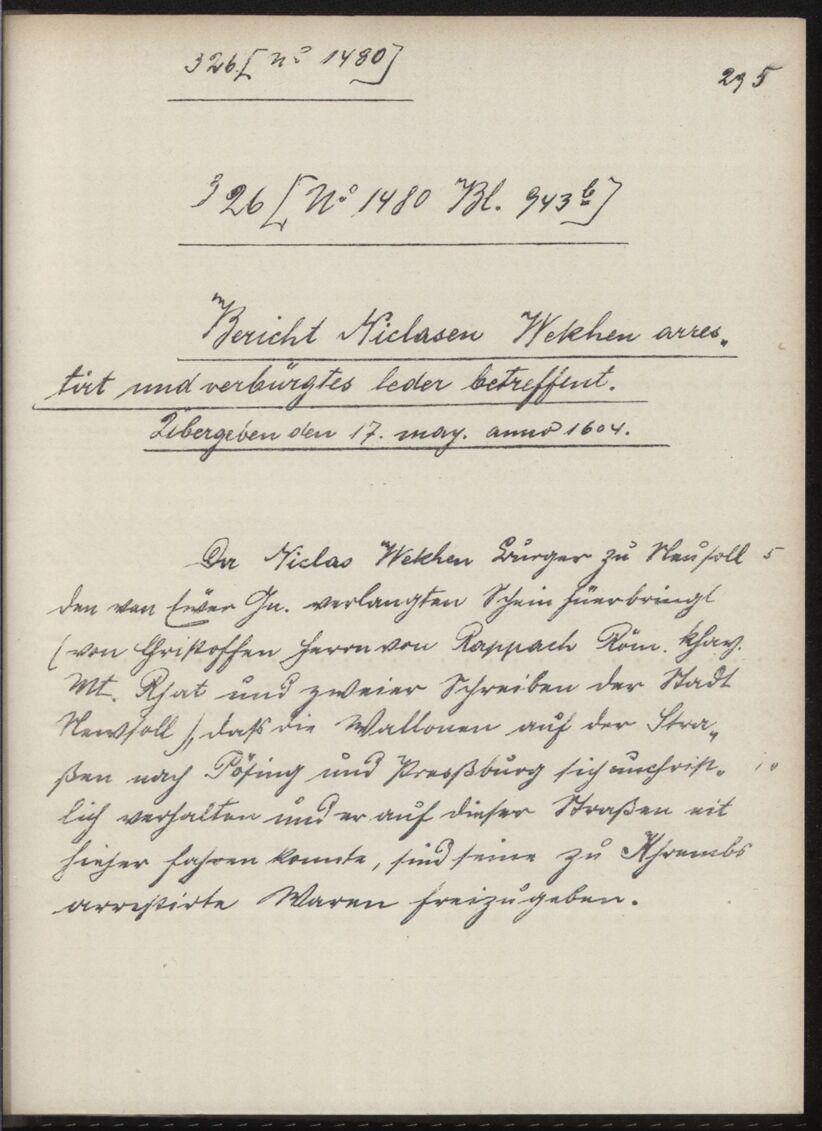 326 [No 1480]
295
326 [No 1480 Bl. 943b]
Bericht Niclasen Wekhen arres„
tirt und verbürgtes leder betreffent.
Übergeben den 17. may. anno 1604.
Da Niclas Wekhen Burger zu Neusoll 5
den von Ewer Gn. verlangten Schein fuerbringt
(von Christoffen Herrn von Rappach Röm. Khay.
Mt. Rhat und zweier Schreiben der Stadt
Newsoll), daß die Wallonen auf der Stra„
ßen nach Pösing und Presßburg sich unchrist„ 10
lich verhalten und er auf dieser Straßen nit
hieher fahren konnte, sind seine zu Khrembs
arrestirte Waren freizugeben.